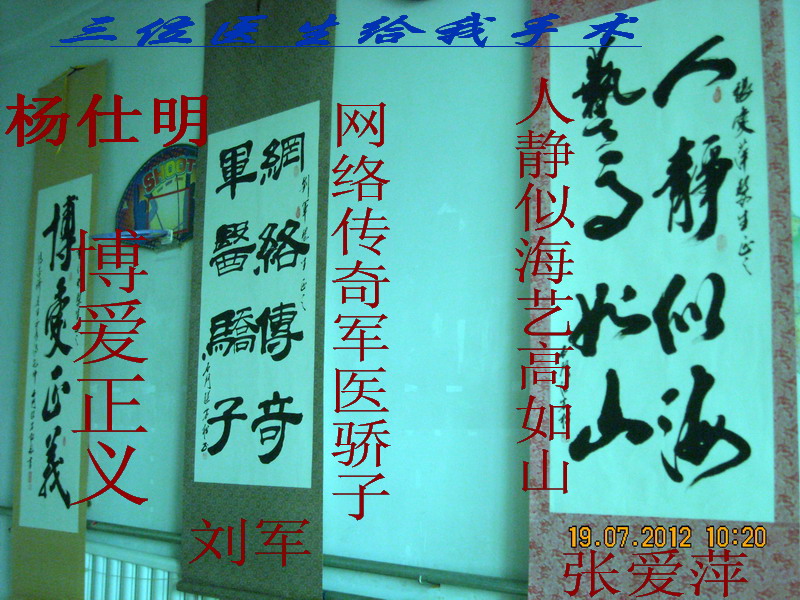 三位医生给我手术
杨仕明
博爱正义
博愛正義
SHOOT
網絡傳奇
軍醫驕子
网络传奇军医骄子
刘军
人静似海艺高如山
人靜似海
藝高如山
张爱萍
19.07.2012 10:20